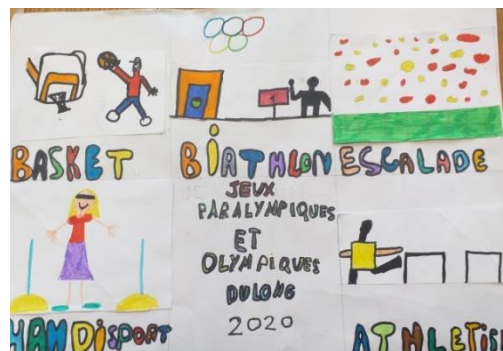 BASKET BIATHLON ESCALADE
1
JEUX
PARALYMPIQUES
ET
OLYMPIQUES
DULONG
2020
HANDISPORT